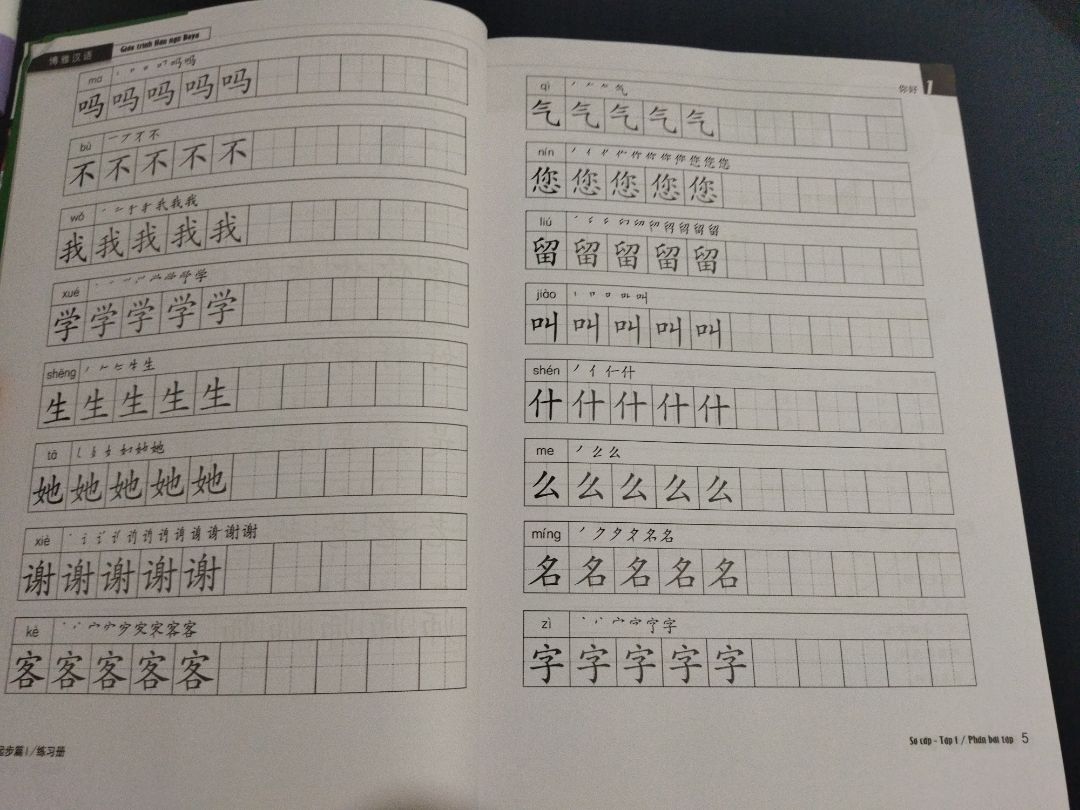 博雅汉语 Giáo trình Hán ngữ Boya
ma 吗吗
吗 吗 吗 吗 吗
bù 一 丆 不 不
不 不 不 不 不
wǒ 我我我
我 我 我 我 我
xué 学
学 学 学 学 学
shēng 生
生 生 生 生 生
tā 她
她 她 她 她 她
xiè 谢谢
谢 谢 谢 谢 谢
kè 客客
客 客 客 客 客
起步篇 I / 练习册
你好 1
qì 气
气 气 气 气 气
nín 您您您
您 您 您 您 您
liú 留留
留 留 留 留 留
jiào 叫
叫 叫 叫 叫 叫
shén 丿 亻 什
什 什 什 什 什
me 丿 么 么
么 么 么 么 么
míng 名名
名 名 名 名 名
zì 字
字 字 字 字 字
Sơ cấp - Tập 1 / Phần bài tập 5